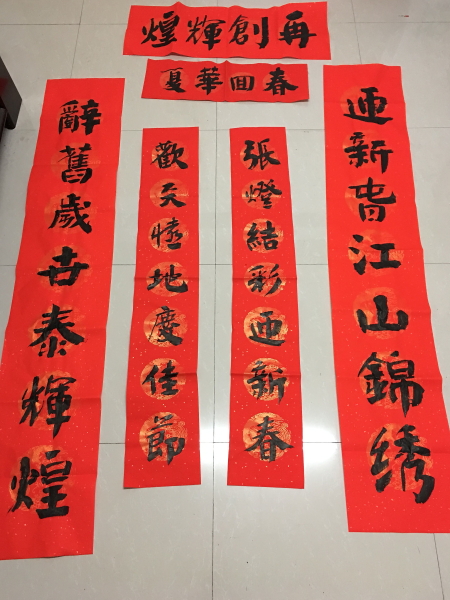 再創輝煌
春回華夏
迎新旾江山錦绣
張燈結彩迎新春
歡天憘地慶佳節
辭舊歲世泰輝煌